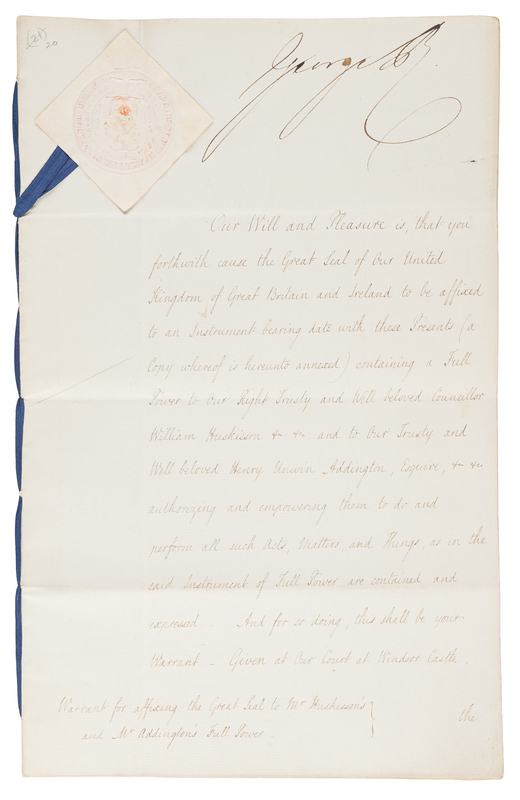 (21)
20
George R.
Our Will and Pleasure is, that you
forthwith cause the Great Seal of Our United
Kingdom of Great Britain and Ireland to be affixed
to an Instrument bearing date with these Presents (a
Copy whereof is hereunto annexed) containing a Full
Power to Our Right Trusty and Well beloved Councillor
William Huskisson &c &c and to Our Trusty and
Well beloved Henry Unwin Addington, Esquire, &c &c
authorizing and empowering them to do and
perform all such Acts, Matters, and Things, as in the
said Instrument of Full Power are contained and
expressed. And for so doing, this shall be your
Warrant. Given at Our Court at Windsor Castle,
Warrant for affixing the Great Seal to Mr Huskisson's
and Mr Addington's Full Power.
the